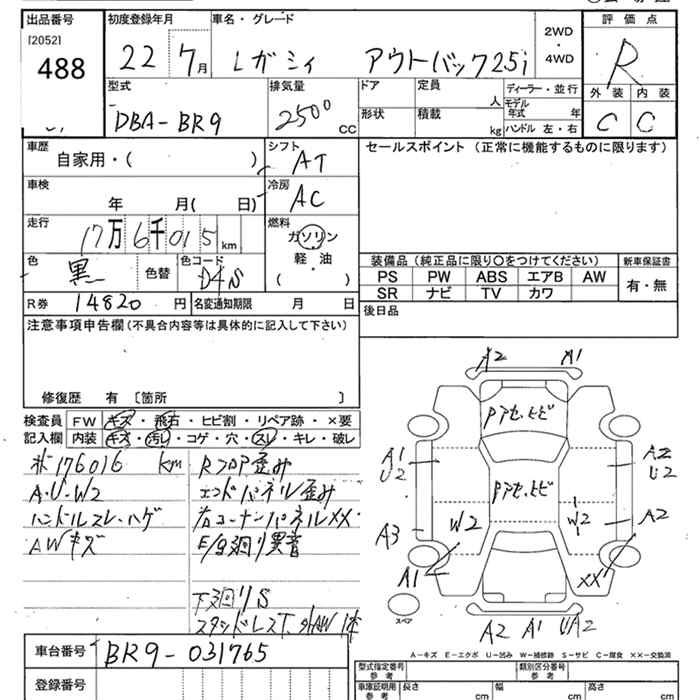 出品番号 初度登録年月 車名・グレード 2WD・4WD 評価点
[2052]
488
22 7月 レガシィ アウトバック25i R
型式 排気量 ドア 定員 人 ディーラー・並行 外装 内装
DBA-BR9 2500 CC 形状 積載 kg モデル年式 年 ハンドル 左・右 C C
車歴 シフト セールスポイント(正常に機能するものに限ります)
自家用・( ) AT
車検 冷房
年 月( 日) AC
走行 燃料
17万6千015km ガソリン
軽・油
( )
色 色替 色コード 装備品(純正品に限り〇をつけてください) 新車保証書
黒 D4S PS PW ABS エアB AW 有・無
SR ナビ TV カワ
R券 14820円 名変通知期限 月 日 後日品
注意事項申告欄(不具合内容等は具体的に記入して下さい)
修復歴 有 〔箇所 〕
検査員 FW キズ・飛石・ヒビ割・リペア跡・×要
記入欄 内装 キズ・汚レ・コゲ・穴・スレ・キレ・破レ
176016 km RフロアP歪み
A・U・W2 エンドパネル歪み
ハンドルスレ・ハゲ 右コーナーパネルXX
AWキズ E/g廻り異音
下廻りS
スタッドレスT
A2 A1
Pアセ、ヒビ
A1 U2 A2 U2
Pアセ、ヒビ
A3 W2 W2 A2
A1 XX
スペア
A2 A1 UA2
A-キズ E-エクボ U-凹み W-補修跡 S-サビ C-腐食 XX-交換済
車台番号 BR9-031765 型式指定番号 類別区分番号
登録番号 車庫証明用 長さ cm 幅 cm 高さ cm